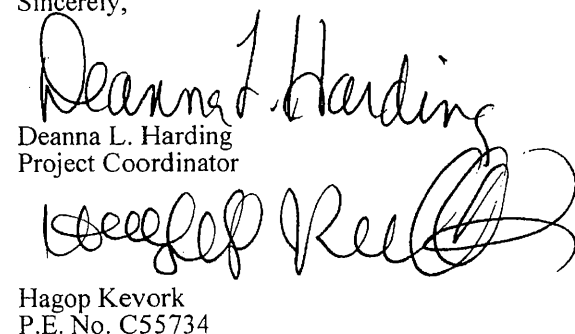 Sincerely,
Deanna L. Harding
Deanna L. Harding
Project Coordinator
Hagop Kevork
P.E. No. C55734